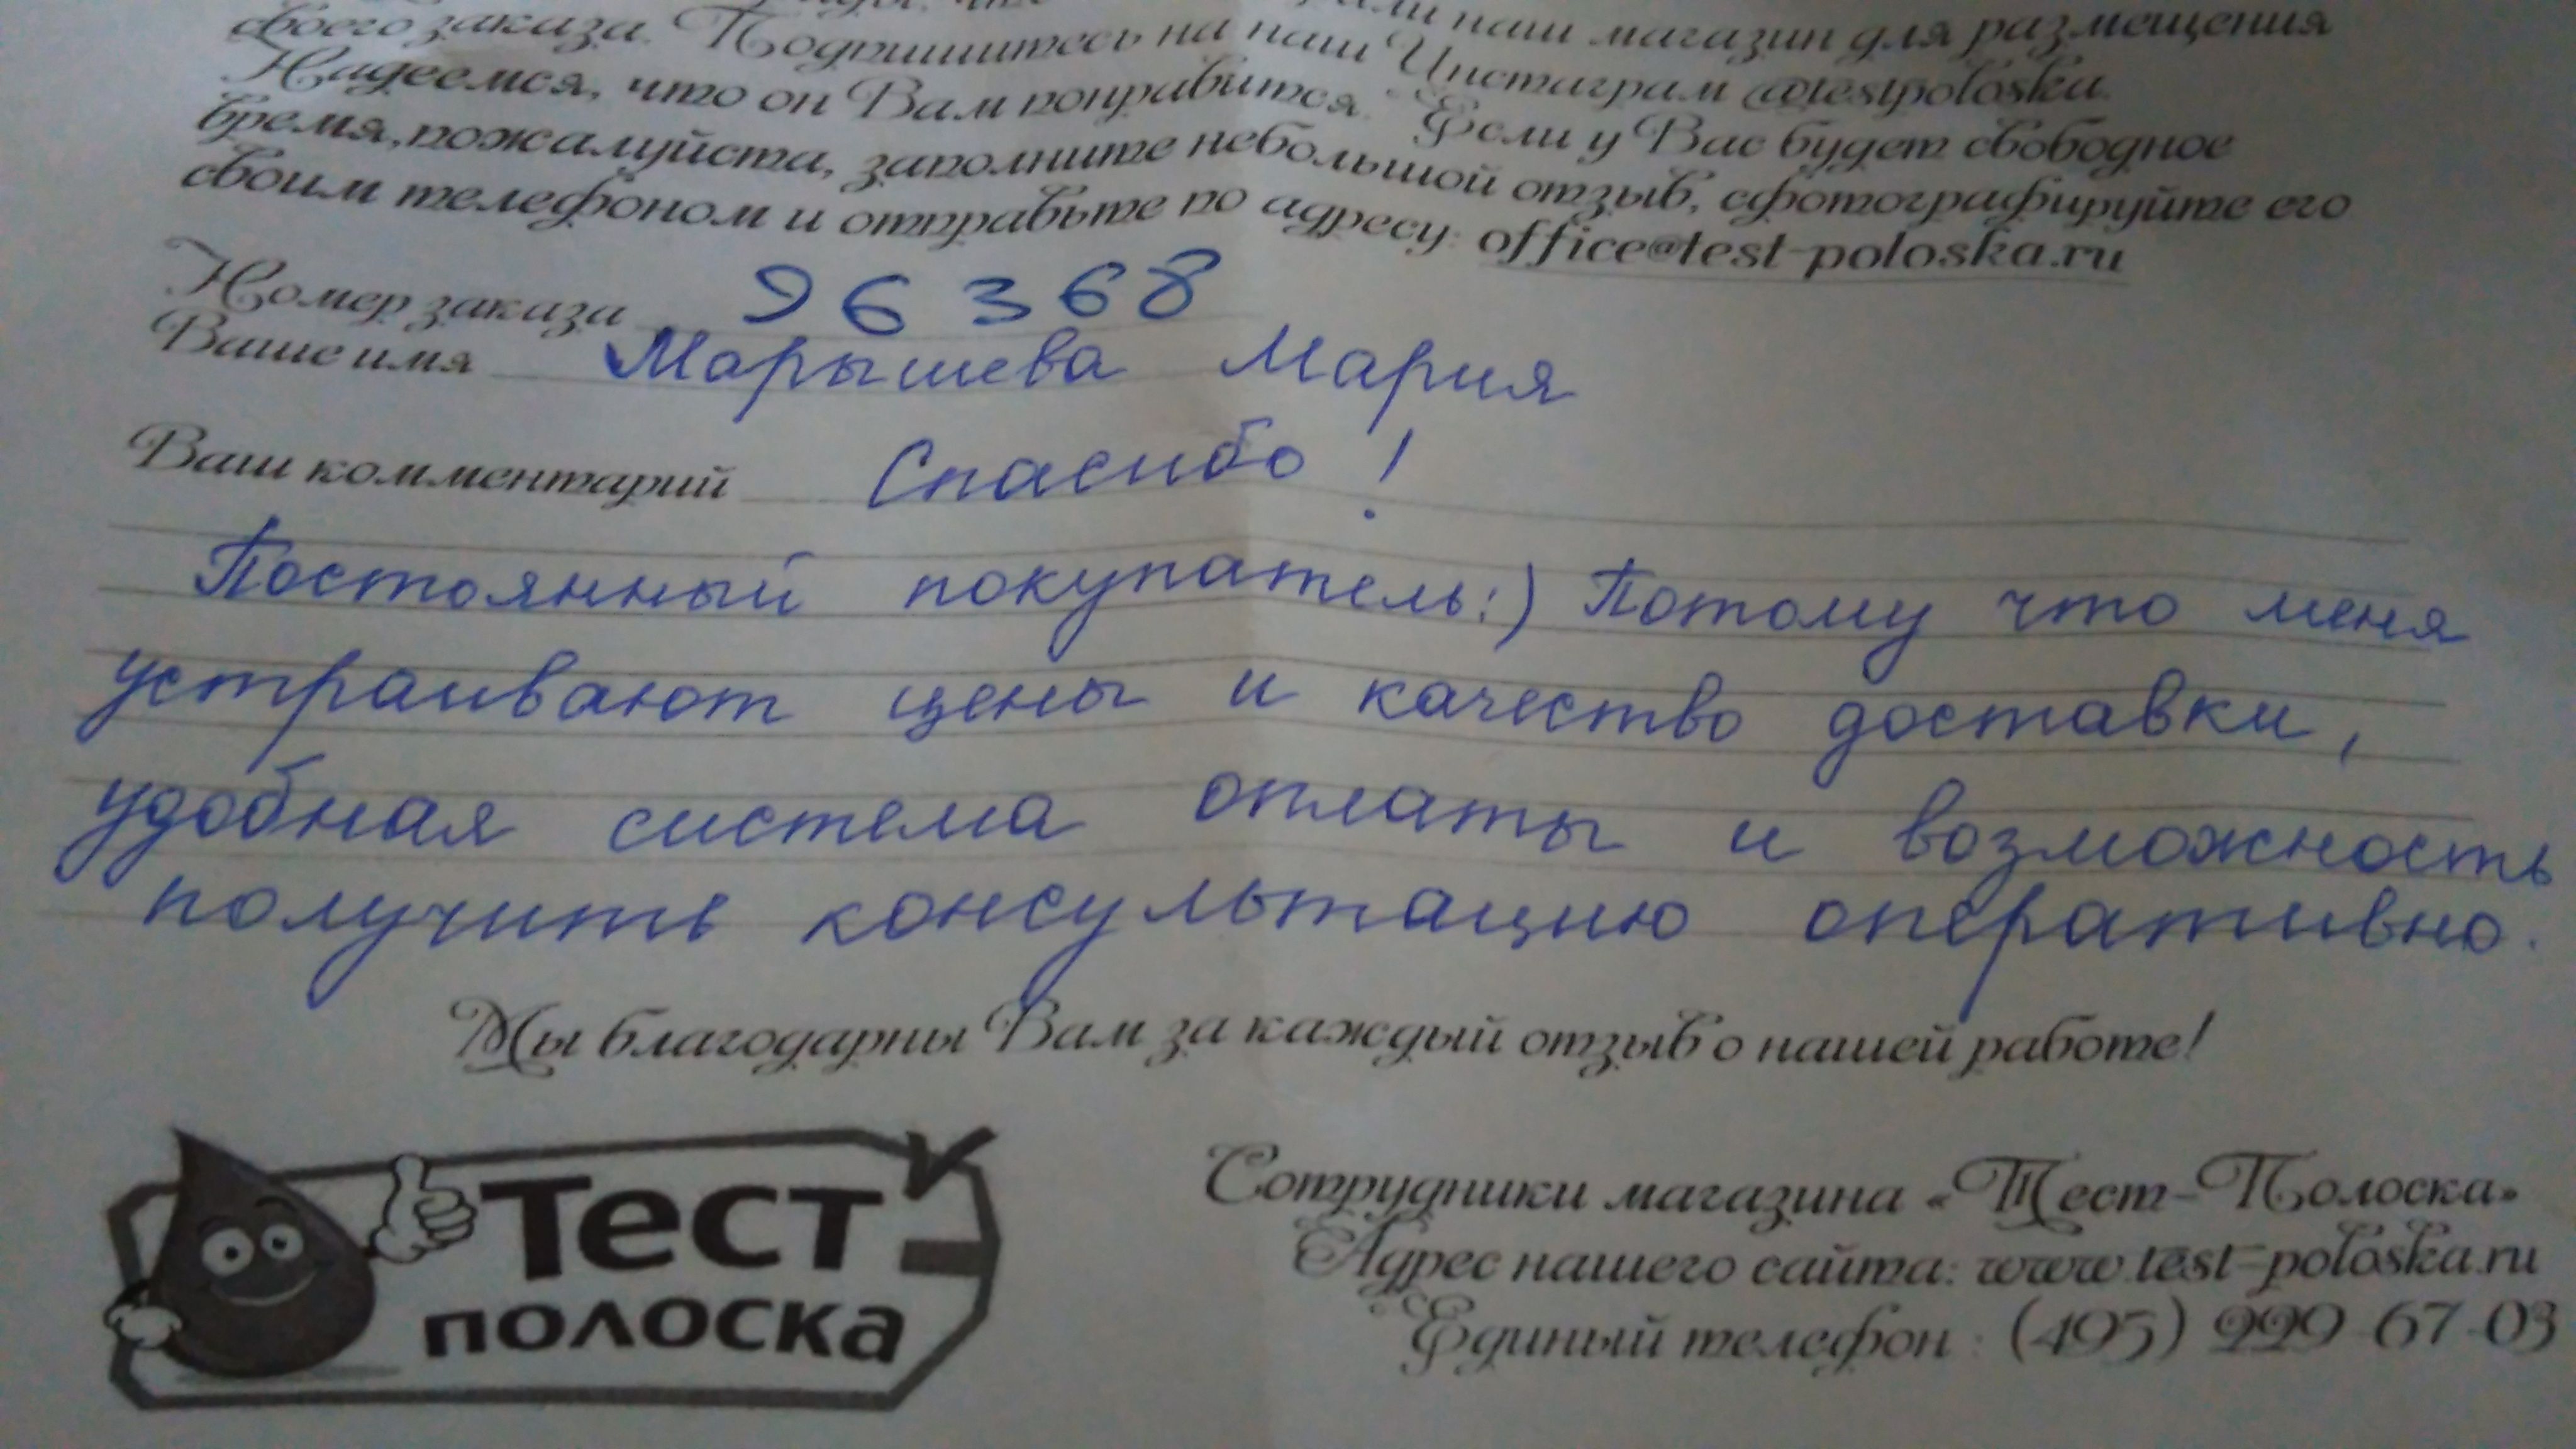 наш магазин для размещения
своего заказа. Подпишитесь на наш Инстаграм @testpoloska.
Надеемся, что он Вам понравится. Если у Вас будет свободное
время, пожалуйста, заполните небольшой отзыв, сфотографируйте его
своим телефоном и отправьте по адресу: office@test-poloska.ru
Номер заказа 96368
Ваше имя Марышева Мария
Ваш комментарий Спасибо!
Постоянный покупатель:) Потому что меня
устраивают цены и качество доставки,
удобная система оплаты и возможность
получить консультацию оперативно.
Мы благодарны Вам за каждый отзыв о нашей работе!
Тест
полоска
Сотрудники магазина «Тест-Полоска»
Адрес нашего сайта: www.test-poloska.ru
Единый телефон: (495) 999-67-03